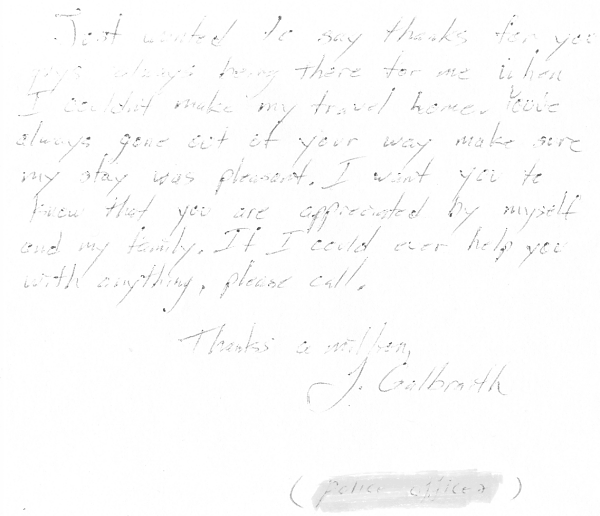 Just wanted to say thanks for you
guys always being there for me when
I couldn't make my travel home. You've
always gone out of your way make sure
my stay was pleasant. I want you to
know that you are appreciated by myself
and my family. If I could ever help you
with anything, please call.
Thanks a million,
J. Galbraith
(police officer)